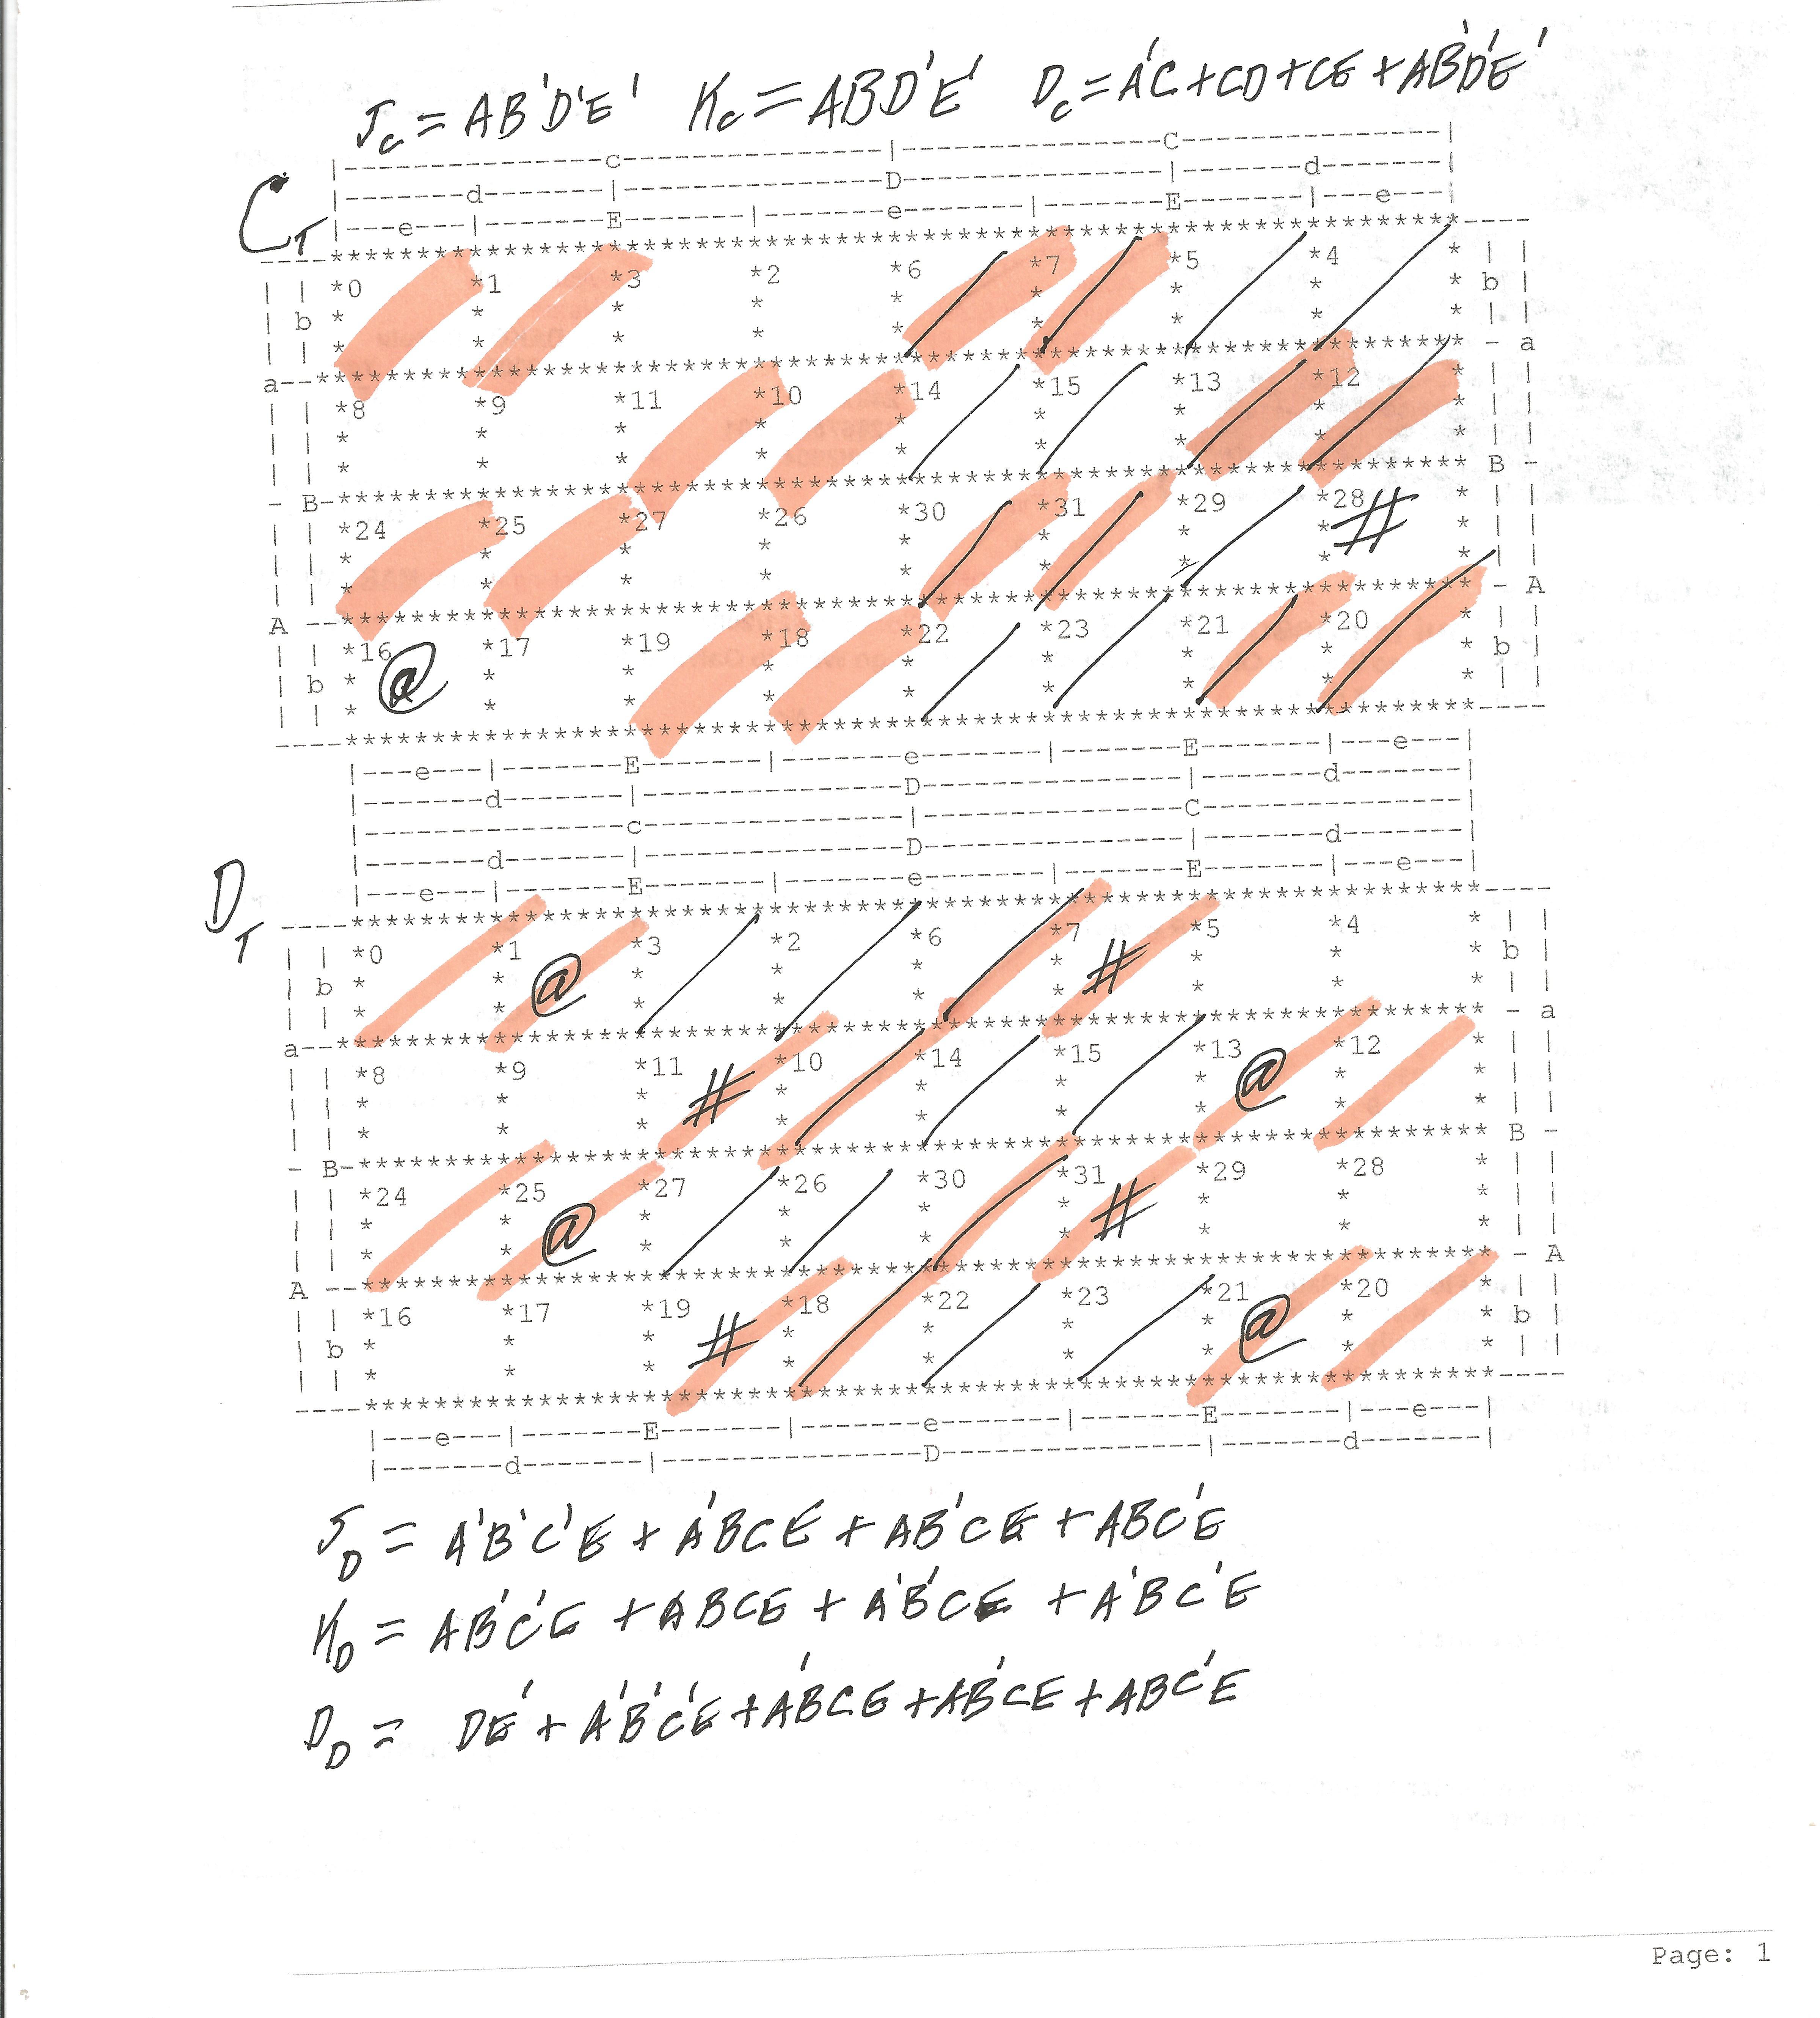 J_C = AB'D'E' K_C = ABD'E' D_C = A'C + CD + CE + AB'D'E'
C_T
|---------------c---------------|---------------C---------------|
|-------d-------|---------------D---------------|-------d-------|
|---e---|-------E-------|-------e-------|-------E-------|---e---|
*0 *1 *3 *2 *6 *7 *5 *4
b b
a a
*8 *9 *11 *10 *14 *15 *13 *12
B B
*24 *25 *27 *26 *30 *31 *29 *28 #
A A
*16 @ *17 *19 *18 *22 *23 *21 *20
b b
|---e---|-------E-------|-------e-------|-------E-------|---e---|
|-------d-------|---------------D---------------|-------d-------|
|---------------c---------------|---------------C---------------|
|-------d-------|---------------D---------------|-------d-------|
D_T
|---e---|-------E-------|-------e-------|-------E-------|---e---|
*0 *1 @ *3 *2 *6 *7 # *5 *4
b b
a a
*8 *9 *11 # *10 *14 *15 *13 @ *12
B B
*24 *25 @ *27 *26 *30 *31 # *29 *28
A A
*16 *17 *19 # *18 *22 *23 *21 @ *20
b b
|---e---|-------E-------|-------e-------|-------E-------|---e---|
|-------d-------|---------------D---------------|-------d-------|
J_D = A'B'C'E + A'BCE + AB'CE + ABC'E
K_D = AB'C'E + ABCE + A'B'CE + A'BC'E
D_D = DE' + A'B'C'E + A'BCE + AB'CE + ABC'E
Page: 1